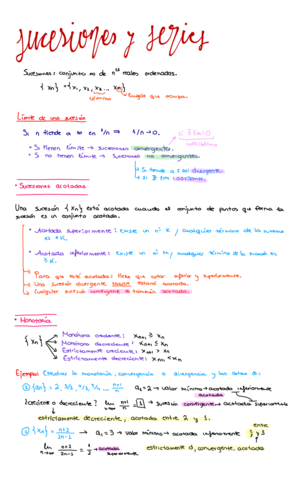 sucesiones y series
Sucesiones: conjunto ∞ de nºs reales ordenados.
{xn} = {x1, x2, x3... xn}
término
lugar que ocupa.
Límite de una sucesión
Si n tiende a ∞ en 1/n ⇒ 1/n → 0.
• Si tienen límite → sucesiones convergentes.
• Si no tienen límite → sucesiones no convergentes.
Si tiende a ± ∞: divergente.
si ∄ lim: oscilante.
• Sucesiones acotadas
Una sucesión {xn} está acotada cuando el conjunto de puntos que forma la
sucesión es un conjunto acotado.
• Acotada superiormente: existe un nº K / cualquier término de la sucesión
es ≤ K.
• Acotada inferiormente: existe un nº M / cualquier término de la sucesión es
Para que esté acotada: tiene que estar inferior y superiormente.
Una sucesión divergente nunca estará acotada.
Cualquier sucesión convergente es también acotada.
• Monotonía
{xn}
Monótona creciente: xn+1 ≥ xn
Monótona decreciente: xn+1 ≤ xn
Estrictamente creciente: xn+1 > xn
Estrictamente decreciente: xn+1 < xn
Ejemplo: Estudiar la monotonía, convergencia o divergencia y las cotas de:
① {an} = 2, 3/2, 4/3, 5/4 ... n+1/n
a1 = 2 → valor máximo → acotada
¿creciente o decreciente? lim n→∞ n+1/n = 1 → sucesión convergente → acotada
estrictamente decreciente, acotada entre 2 y 1.
② {xn} = n+2/2n-1 → a1 = 3 → valor máximo → acotada
entre
lim n→∞ n+2/2n-1 = 1/2 → acotada
estrictamente d, convergente, acotada